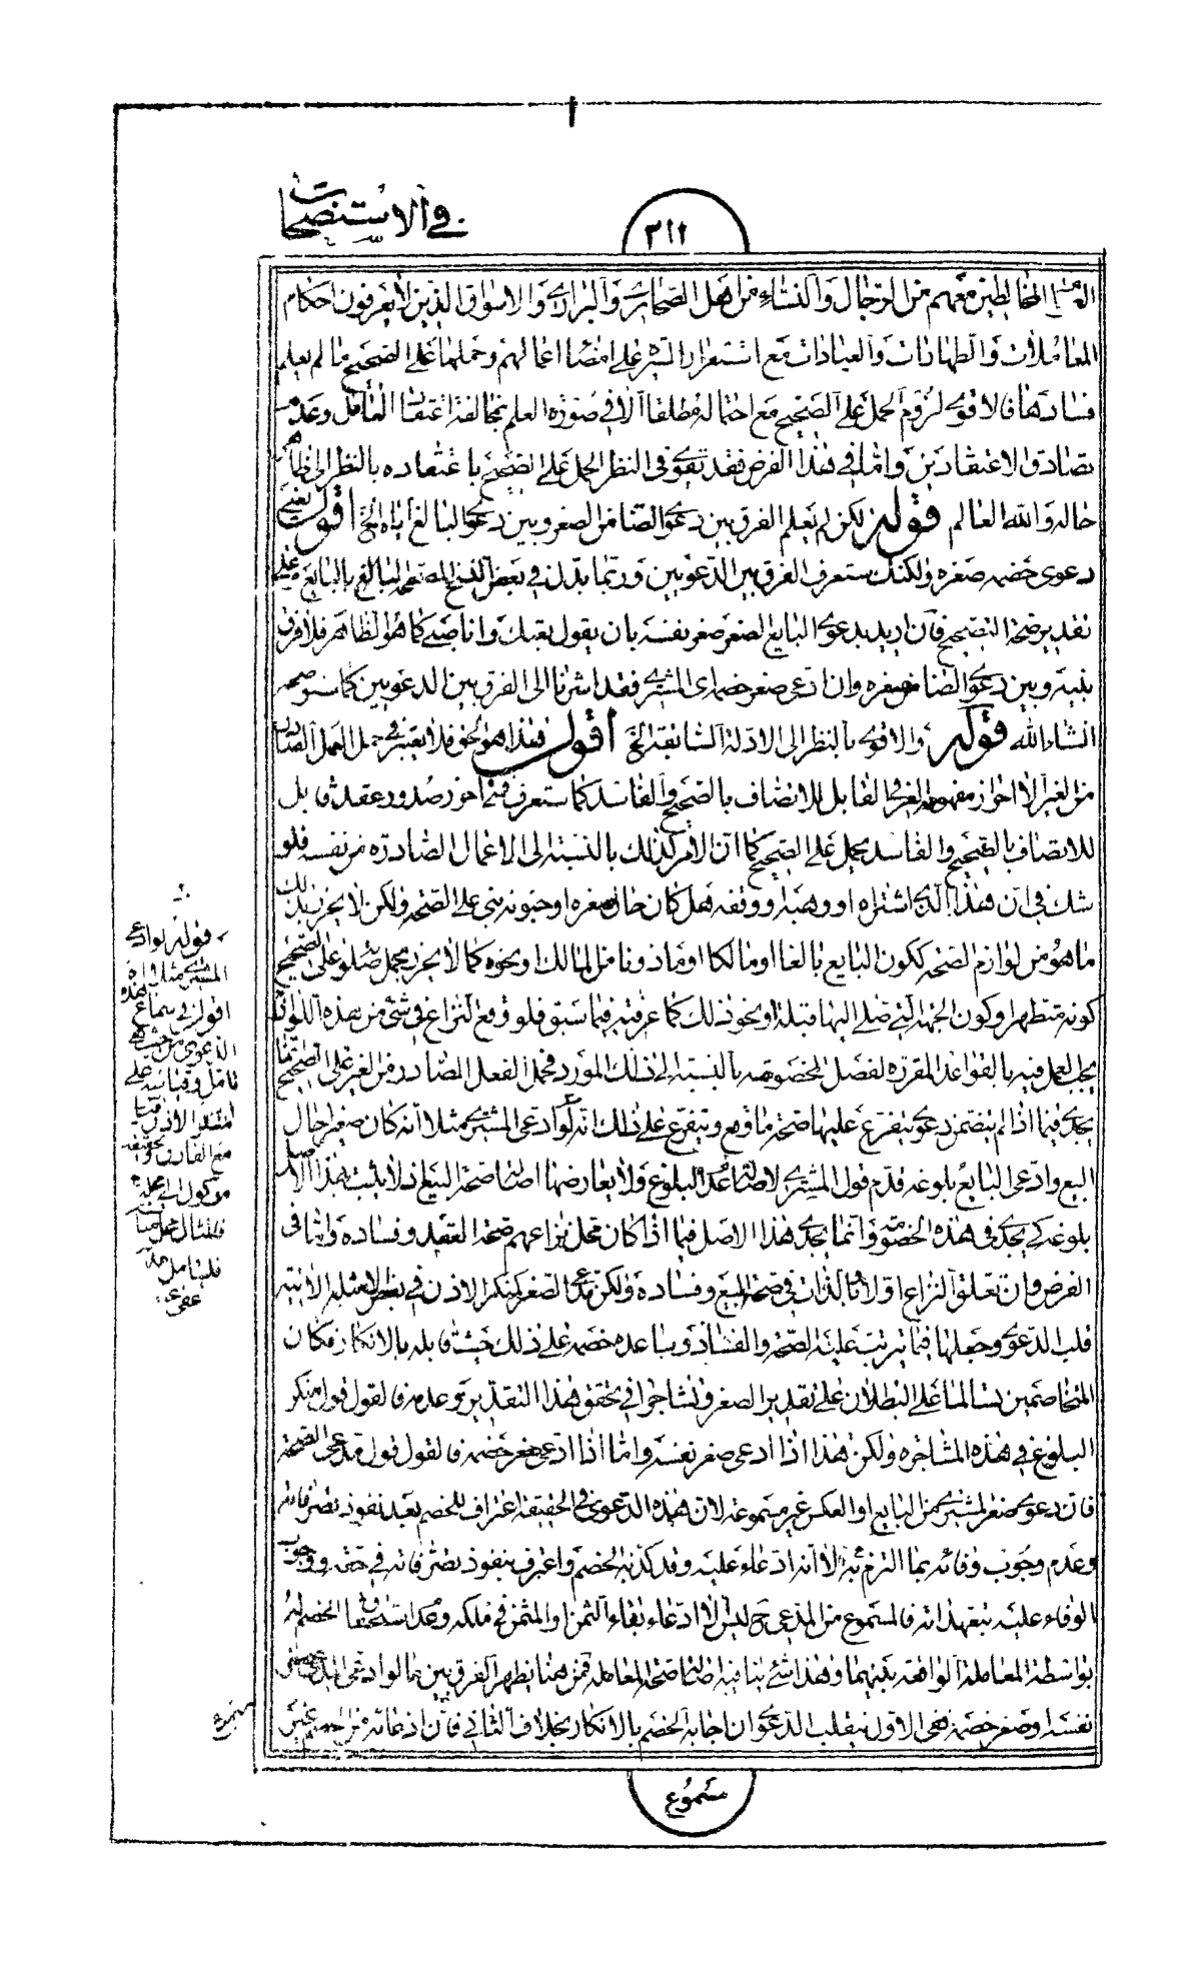 في الاستصحاب
٢١١
المخالطين معهم من الرجال والنساء من اهل الصحاري والبراري والاسواق الذين لا يعرفون احكام
المعاملات والطهارات والعبادات مع استقرار السيرة على امضاء اعمالهم وحملها على الصحيح ما لم يعلم
فسادها فالاقوى لزوم الحمل على الصحيح مع احتماله مطلقا الا في صورة العلم بمخالفة اعتقاد الفاعل وعدم
تصادق الاعتقادين واما في هذا الفرض فقد يقوى في النظر الحمل على الصحيح باعتقاده بالنظر الى ظاهر
حاله والله العالم قوله لكن لم يعلم الفرق بين دعوى الضامن الصغر وبين دعوى البالغ اياه الخ اقول يعني
دعوى خصمه صغره ولكنك ستعرف الفرق بين الدعويين وربما بدل في بعض النسخ المصححة البالغ بالبايع وعلى
تقدير صحة التصحيح فان اريد بدعوى البايع الصغر صغر نفسه بان يقول بعتك وانا صبي كما هو الظاهر فلا فرق
بينه وبين دعوى الضامن صغره وان ادعى صغر خصمه اي المشتري فقد اشرنا الى الفرق بين الدعويين كما سنوضحه
انشاء الله قوله والاقوى بالنظر الى الادلة السابقة الخ اقول هذا هو الحق فلا يعتبر في حمل العمل الصادر
من الغير الا احراز مفهومه العرفي القابل للاتصاف بالصحيح والفاسد كما ستعرف فمتى احرز صدور عقد قابل
للاتصاف بالصحيح والفاسد يحمل على الصحيح كما ان الامر كذلك بالنسبة الى الاعمال الصادرة من نفسه فلو
شك في ان هذا الذي اشتراه او وهبه او وقفه هل كان حال صغره او جنونه بنى على الصحة ولكن لا يحرز بذلك
ما هو من لوازم الصحة ككون البايع بالغا او مالكا او ماذونا من المالك ونحوه كما لا يحرز بحمل صلوته على الصحيح
كونه متطهرا وكون الجهة التي صلى اليها قبلة او نحو ذلك كما عرفته فيما سبق فلو وقع النزاع في شئ من هذه اللوازم
يجب العمل فيه بالقواعد المقررة لفصل الخصومة بالنسبة الى ذلك المورد فحمل الفعل الصادر من الغير على الصحيح انما
يجدي فيما اذا لم يتضمن دعوى يتفرع عليها صحة ما وقع ويتفرع على ذلك انه لو ادعى المشتري مثلا انه كان صغيرا حال
البيع وادعى البايع بلوغه قدم قول المشتري لاصالة عدم البلوغ ولا يعارضها اصالة صحة البيع اذ لا يثبت بهذا الاصل
بلوغه كي يجدي في هذه الخصومة وانما يجدي هذا الاصل فيما اذا كان محل نزاعهم صحة العقد وفساده واما في
الفرض فان تعلق النزاع اولا وبالذات في صحة البيع وفساده ولكن مدعي الصغر كمنكر الاذن في بطلانه
قلب الدعوى وجعلها فيما يترتب عليه الصحة والفساد وساعده خصمه على ذلك حيث قابله بالانكار فكان
المتخاصمين تسالما على البطلان على تقدير الصغر وتشاجرا في تحقق هذا التقدير وعدمه فالقول قول منكر
البلوغ في هذه المشاجرة ولكن هذا اذا ادعى صغر نفسه واما اذا ادعى صغر خصمه فالقول قول مدعي الصحة
فان دعوى صغر المشتري من البايع او العكس غير مسموعة لان هذه الدعوى في الحقيقة اعتراف للخصم بعدم نفوذ تصرفاته
وعدم وجوب وفائه بما التزم به الا انه ادعاء عليه وقد كذبه الخصم واعترف بنفوذ تصرفاته في حقه ووجوب
الوفاء عليه بتعهداته فالمسموع من المدعي ح ليس الا ادعاء بقاء الثمن او المثمن في ملكه وعدم استحقاق الخصم له
بواسطة المعاملة الواقعة بينهما وهذا شئ ينافيه اصالة صحة المعاملة فمن هنا يظهر الفرق بين ما لو ادعى المدعي صغر
نفسه او صغر خصمه ففي الاول ينقلب الدعوى ان اجابه الخصم بالانكار بخلاف الثاني فان ادعائه صغر خصمه غير
مسموع
قوله لو ادعى
المشتري مثلا انه
اقول في سماع هذه
الدعوى من حيث هي
تامل وقياسه على
مع الفارق وتحقيقه
موكول الى محله
فليتامل منه
عفى عنه